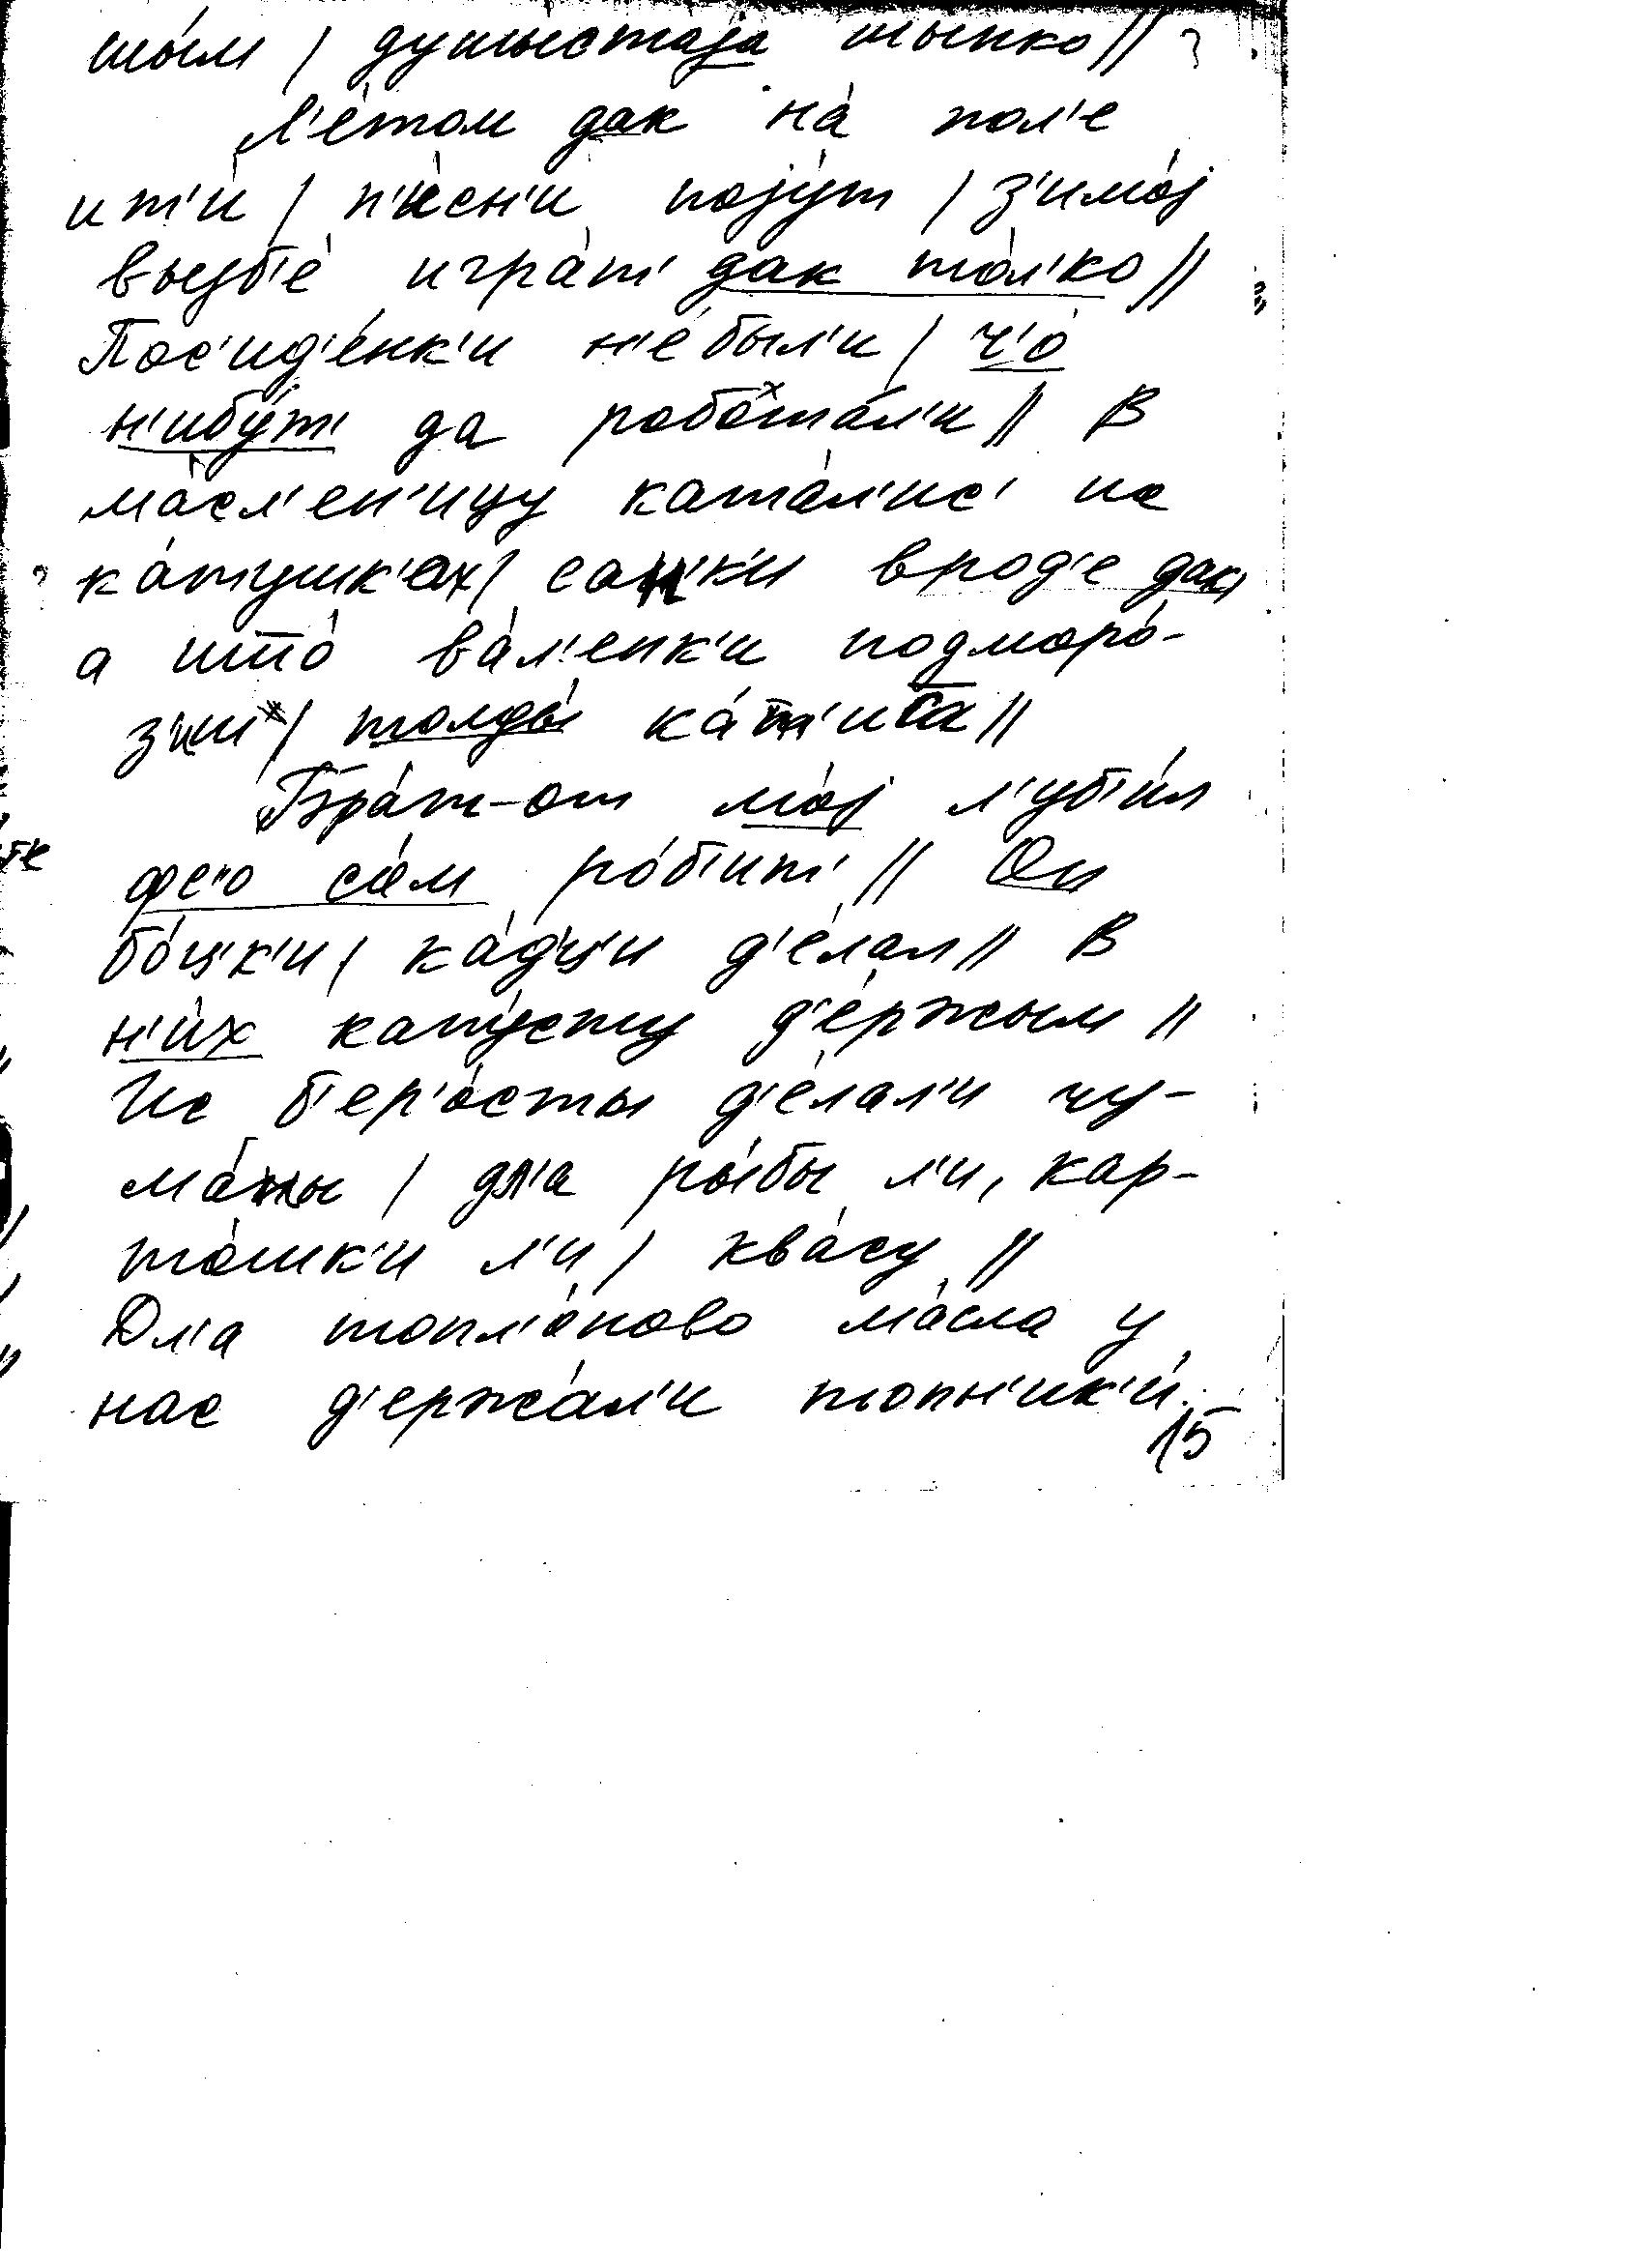 шы́м / душыстаjа шыпко //
Л'е́том дак на́ пол'е
ит'и́ / п'и́сн'и поjу́т / з'имо́j
вызб'е́ игра́т' дак то́л'ко //
Пос'ид'е́нк'и н'е́были / ч'о́
н'ибу́т' да робота́л'и // В
ма́сл'ен'ицу ката́л'ис' на
ка́тушк'ах / са́нк'и врод'е дак,
а што́ ва́л'енк'и подморо́-
з'иш / толды́ ка́т'иса //
Бра́т-от мо́j л'уб'и́л
фс'о са́м ро́б'ит' // Он
бо́ц'к'и / ка́дц'и д'е́лал // В
н'и́х капу́сту д'е́ржым //
Ис б'ер'о́сты д'е́лал'и чу-
ма́ны / дл'а ры́бы л'и, кар-
то́шк'и л'и / ква́су //
Дл'а топл'о́ново ма́сла у
нас д'ержа́л'и топн'ик'и́.
15